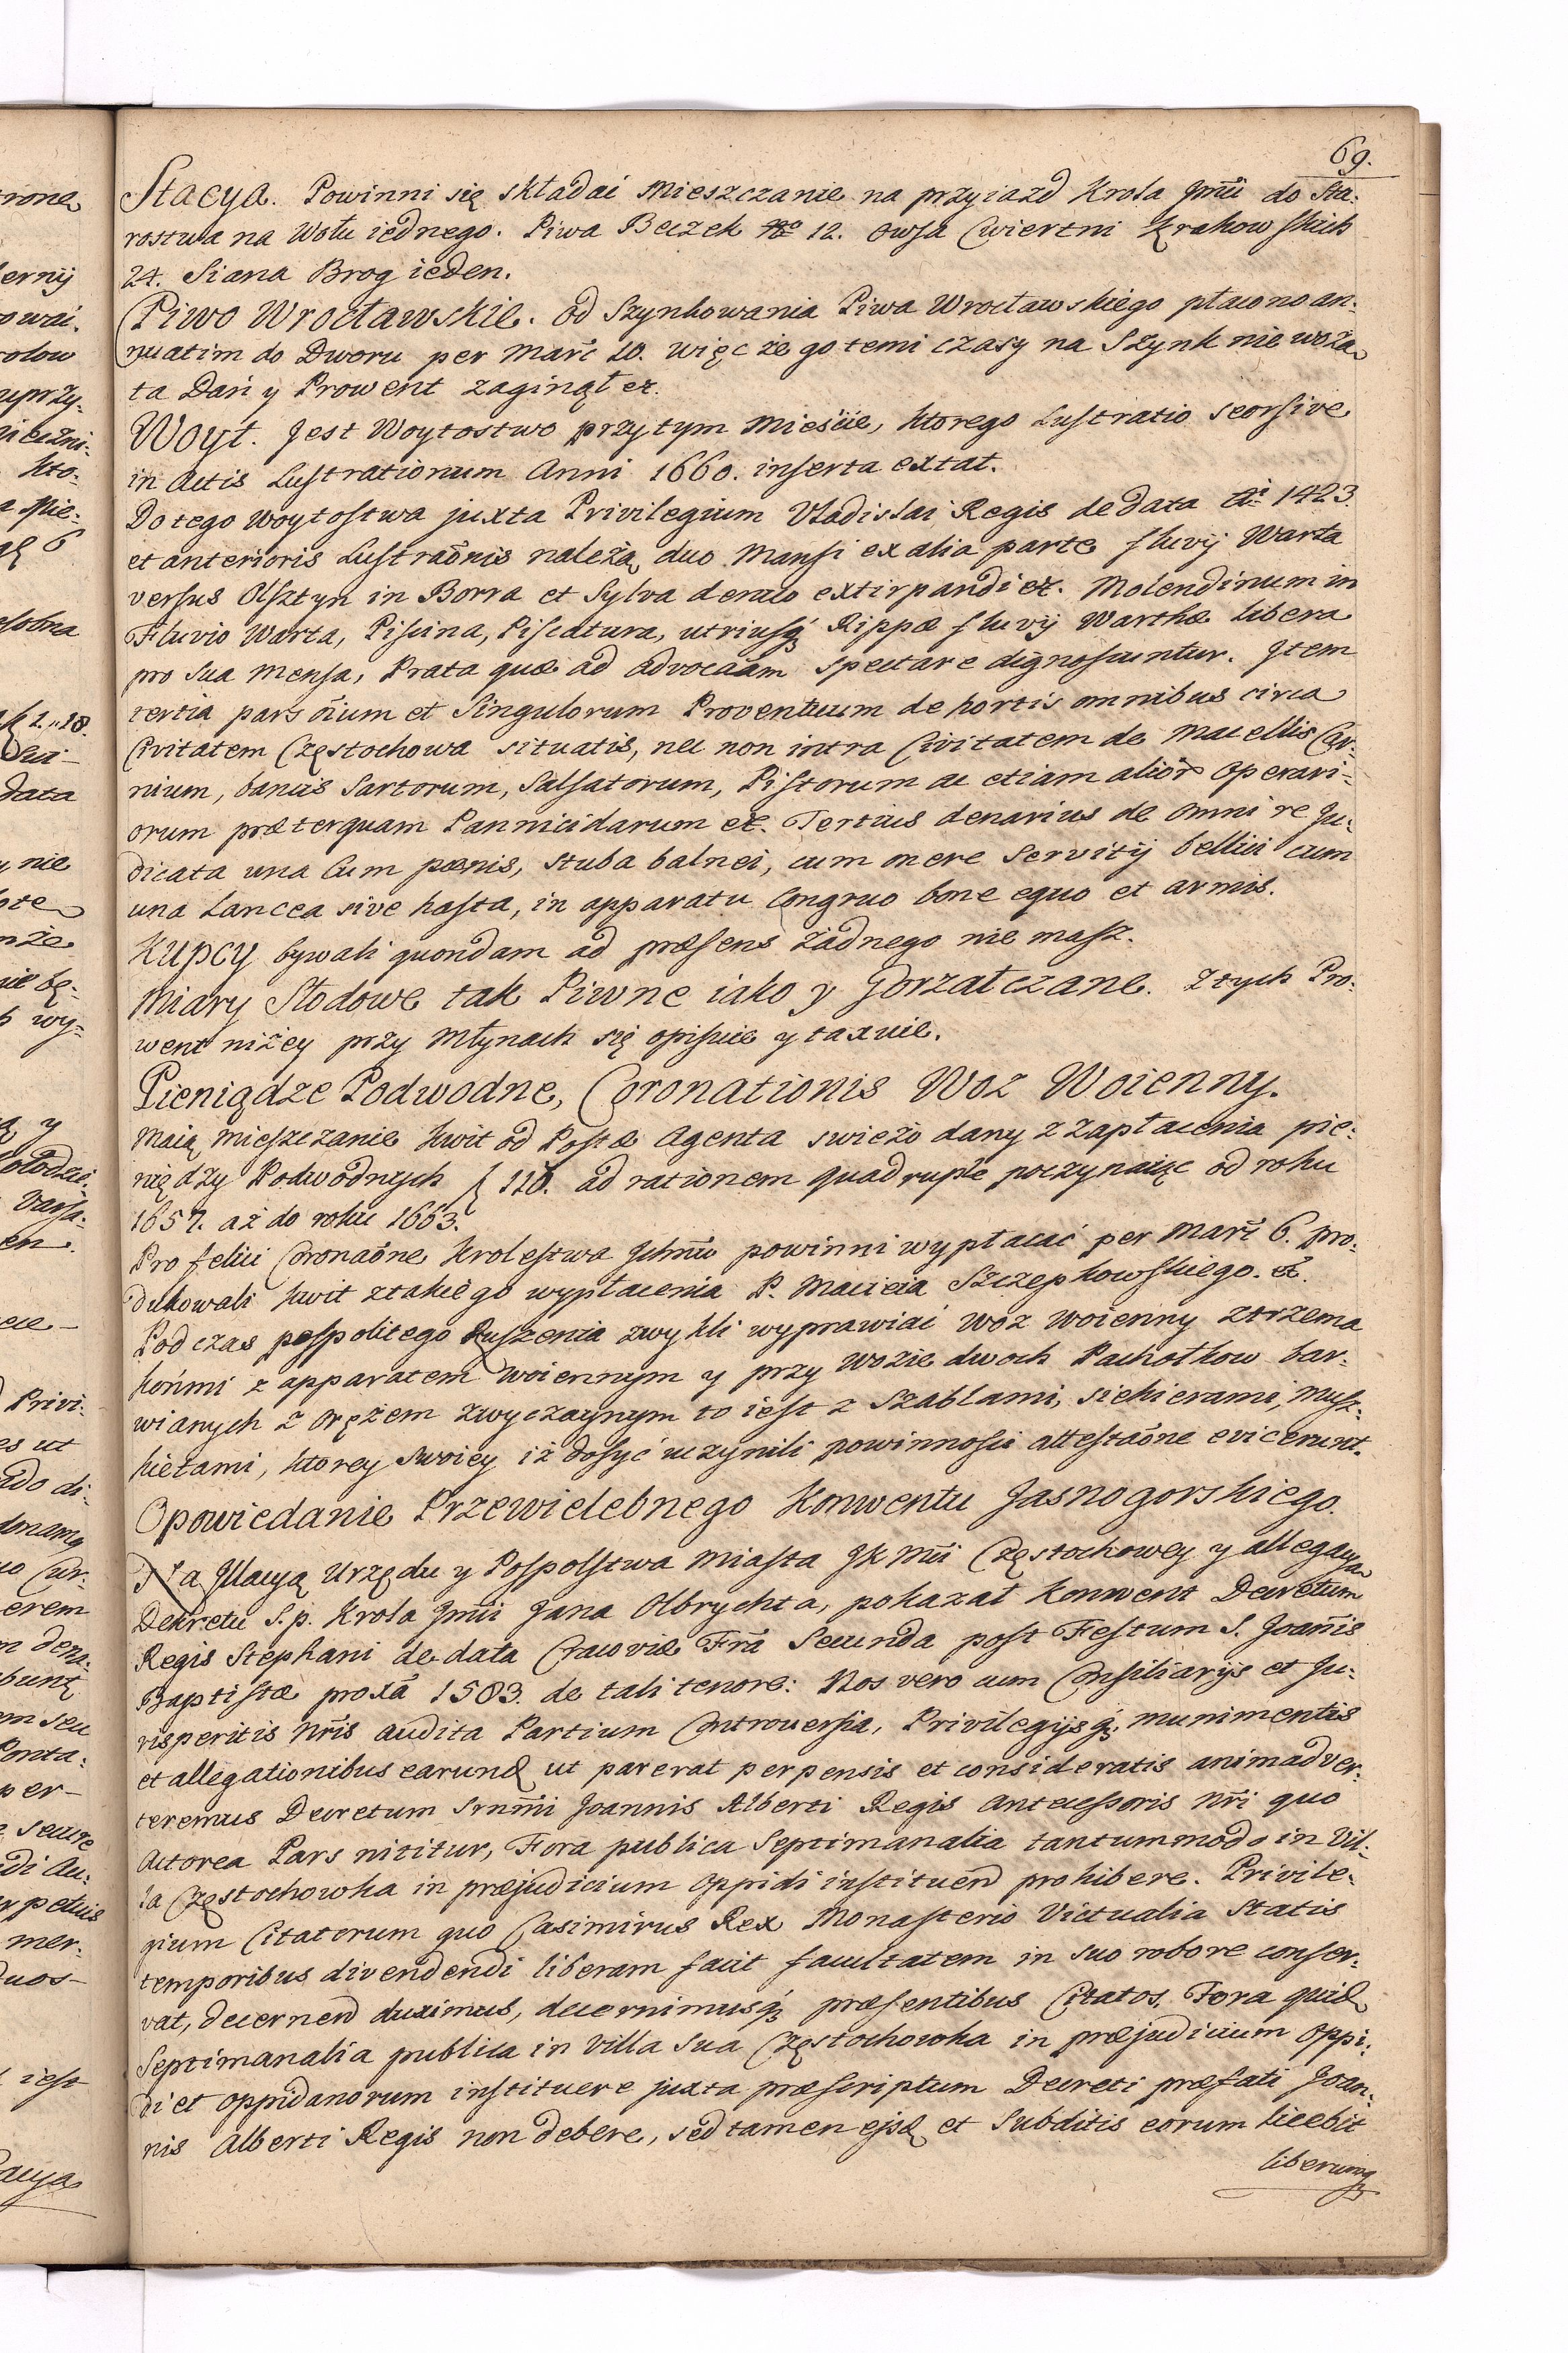 69.
Stacya. Powinni się składać Mieszczanie na przyiazd Krola Jmći do Sta:
rostwa na Wołu iednego. Piwa Beczek No 12. Owsa Cwiertni Krakowskich
24. Siana Brog ieden.
Piwo Wrocławskie. Od Szynkowania Piwa Wrocławskiego płacono an:
nuatim do Dworu per Marc 10. więc że go temi czasy na Szynk nie wożą
ta Dań y Prowent zaginął etc.
Woyt. Jest Woytostwo przytym Mieście, ktorego Lustratio seorsive
in Actis Lustrationum Anni 1660. inserta extat.
Do tego woytostwa juxta Privilegium Vladislai Regis de data Ai 1423.
et anterioris Lustraõnis należą duo Mansi ex alia parte fluvij Warta
versus Olsztyn in Borra et Sylva denuo extirpandi etc. Molendinum in
Fluvio Warta, Piscina, Piscatura, utriusq Rippæ fluvij Warthæ libera
pro sua mensa, Prata quæ ad advocaãm spectare dignoscuntur. Item
tertia pars õium et Singulorum Proventuum de hortis omnibus circa
Civitatem Częstochowa situatis, nec non intra Civitatem de Macellis Car:
nium, bancis Sartorum, Salsatorum, Pistorum ac etiam alior Operari:
orum præterquam Pannicidarum etc. Tertius denarius de omni re Ju:
dicata una Cum pænis, stuba balnei, cum onere Servitij bellici cum
una Lancea sive hasta, in apparatu Congruo bone equo et armis.
Kupcy bywali quondam ad præsens żadnego nie masz.
Miary Słodowe tak Piwne iako y Gorzałczane. Z tych Pro:
went niżey przy Młynach się opisuie y taxuie.
Pieniądze Podwodne, Coronationis Woz Woienny.
Maią mieszczanie kwit od Postæ Agenta swieżo dany z zapłacenia pie:
niędzy Podwodnych f 110. ad rationem quadruplæ poczynaiąc od roku
1657. aż do roku 1663.
Pro felici Coronaõne Krolestwa Ichmći powinni wypłacać per Marc 6. pro:
dukowali kwit ztakiego wypłacenia P. Macieia Szczepkowskiego. etc.
Podczas pospolitego Ruszenia zwykli wyprawiać woz woienny z trzema
końmi z apparatem woiennym y przy wozie dwoch Pachołkow bar:
wianych z orężem zwyczaynym to iest z Szablami, siekierami, Musz:
kietami, ktorey swoiey iż dosyć uczynili powinności attestaõne evicerunt.
Opowiedanie Przewielebnego Konwentu Jasnogorskiego.
Na Illacyą Urzędu y Pospolstwa Miasta JK Mći Częstochowey y allegacyą
Dekretu S. p. Krola Jmći Jana Olbrychta, pokazał Konwent Decretum
Regis Stephani de data Cracoviæ Fria Secunda post Festum S. Joannis
Baptistæ proxã 1583. de tali tenore: Nos vero cum Consiliarijs et Ju:
risperitis nris audita Partium Controversia, Privilegijsq, munimentis
et allegationibus earund ut parerat perpensis et consideratis animadver:
teremus Decretum Srnmi Joannis Alberti Regis Antecessoris nri quo
Actorea Pars nititur, Fora publica Septimanalia tantummodo in Vil:
la Częstochowka in præjudicium oppidi instituend prohibere. Privile:
gium Citatorum quo Casimirus Rex Monasterio Victualia Statis
temporibus divendendi liberam facit facultatem in suo robore conser:
vat, decernend duximus, decernimusq præsentibus Citatos, Fora quid
Septimanalia publica in Villa Sua Częstochowka in præjudicium Oppi:
di et oppidanorum instituere juxta præscriptum Decreti præfati Joan:
nis Alberti Regis non debere, sed tamen ejsd et Subditis eorum licebit
liberumq